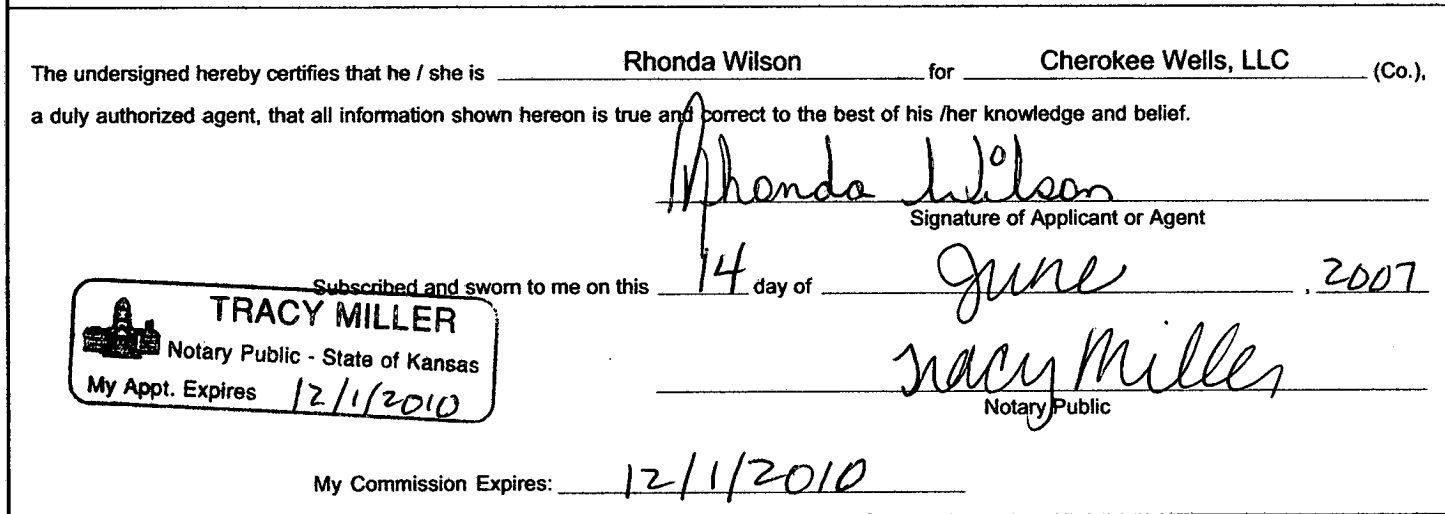 The undersigned hereby certifies that he / she is Rhonda Wilson for Cherokee Wells, LLC (Co.),
a duly authorized agent, that all information shown hereon is true and correct to the best of his /her knowledge and belief.
Rhonda Wilson
Signature of Applicant or Agent
Subscribed and sworn to me on this 14 day of June , 2007
TRACY MILLER
Notary Public - State of Kansas
My Appt. Expires 12/1/2010
Tracy Miller
Notary Public
My Commission Expires: 12/1/2010